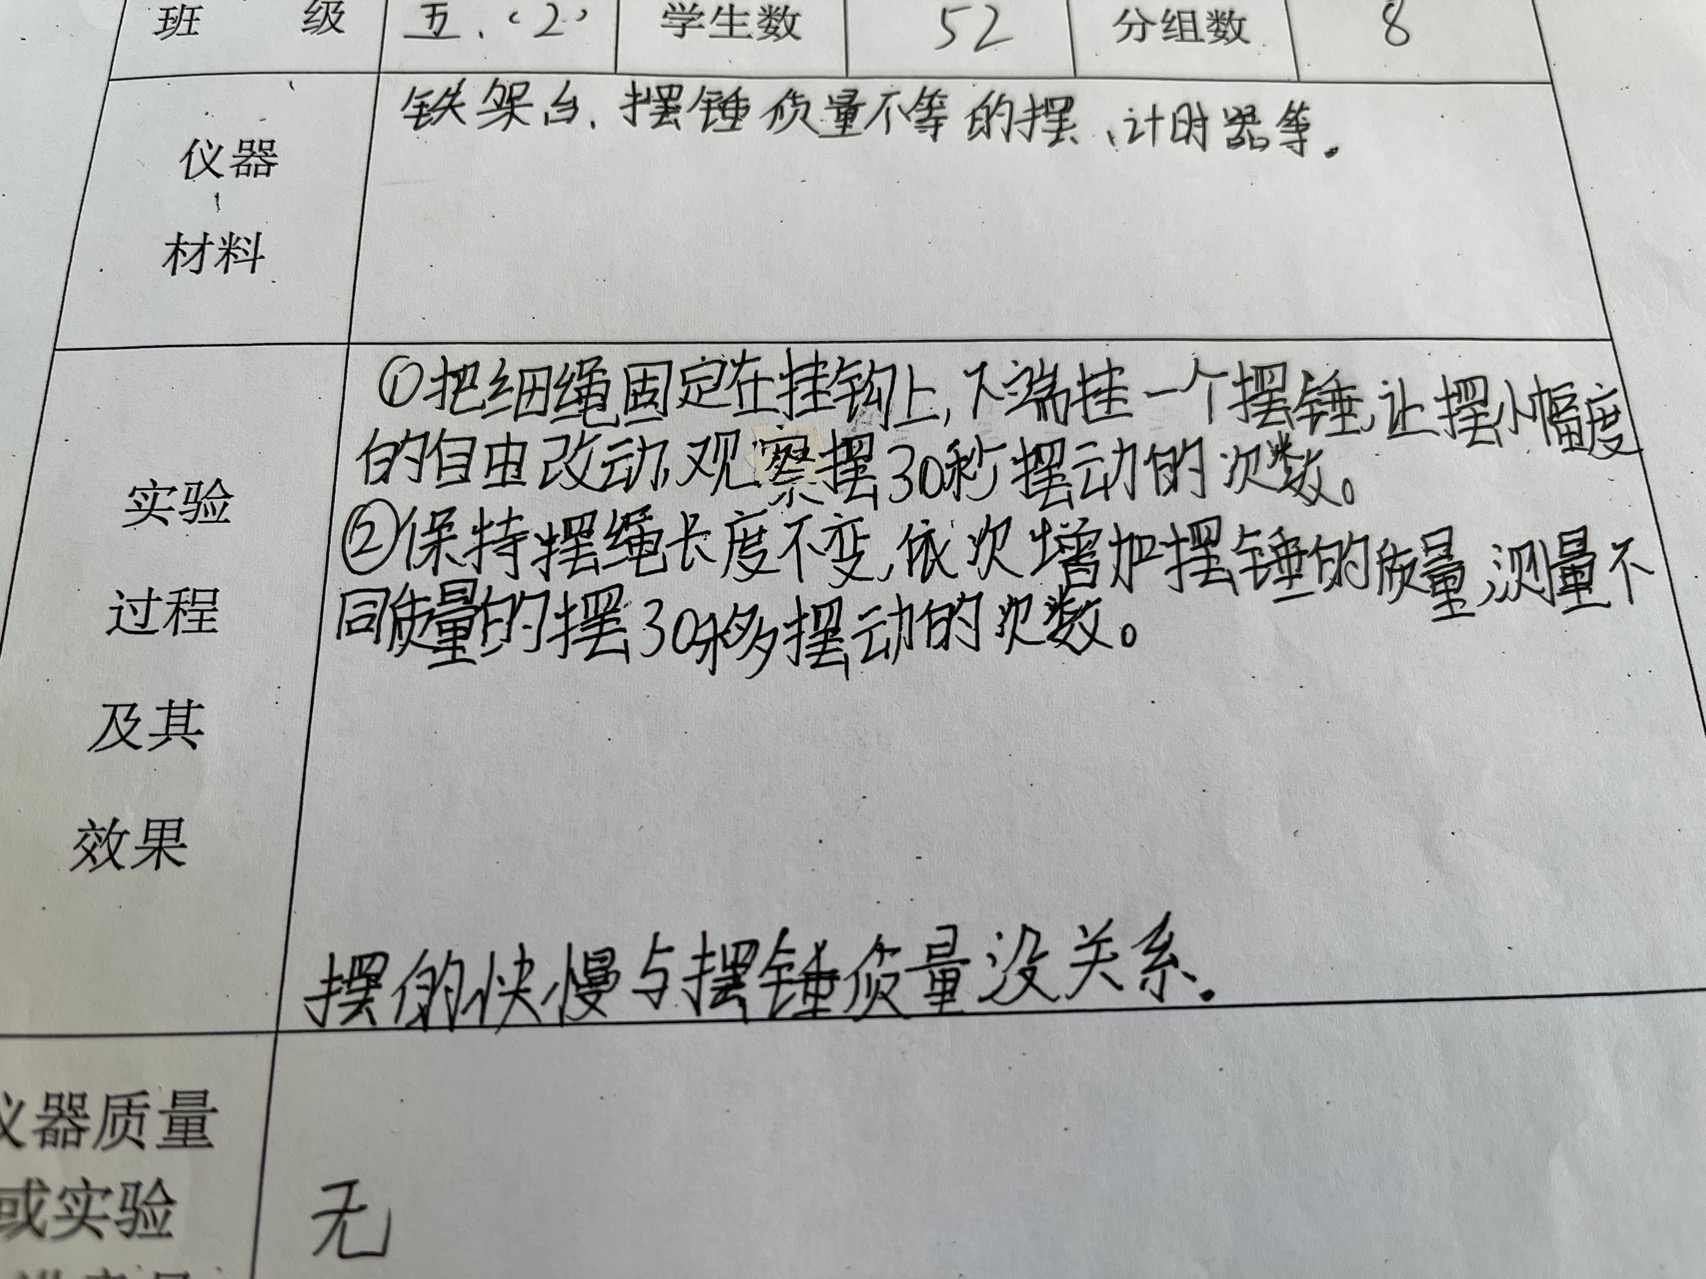 班 级 五.（2） 学生数 52 分组数 8
仪器
材料
铁架台、摆锤质量不等的摆、计时器等。
实验
过程
及其
效果
①把细绳固定在挂钩上,下端挂一个摆锤,让摆小幅度
的自由改动,观察摆30秒摆动的次数。
②保持摆绳长度不变,依次增加摆锤的质量,测量不
同质量的摆30秒摆动的次数。
摆的快慢与摆锤质量没关系.
仪器质量
或实验
无